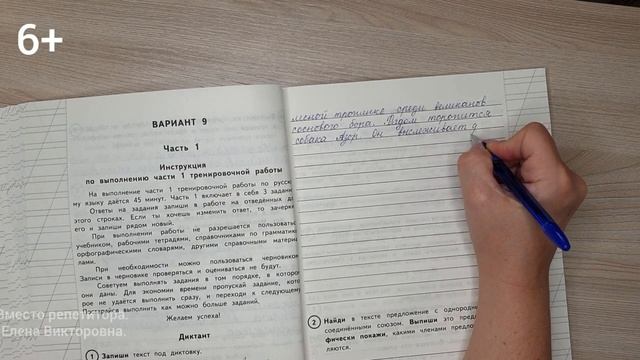 6+
ВАРИАНТ 9
Часть 1
Инструкция
по выполнению части 1 тренировочной работы
На выполнение части 1 тренировочной работы по русско
му языку даётся 45 минут. Часть 1 включает в себя 3 задани
Ответы на задания запиши в работе на отведённых дл
этого строках. Если ты хочешь изменить ответ, то зачеркн
его и запиши рядом новый.
При выполнении работы не разрешается пользовать
учебником, рабочими тетрадями, справочниками по граммати
орфографическими словарями, другими справочными матери
лами.
При необходимости можно пользоваться черновиком.
Записи в черновике проверяться и оцениваться не будут.
Советуем выполнять задания в том порядке, в которо
они даны. Для экономии времени пропускай задание, кото
рое не удаётся выполнить сразу, и переходи к следующему
Постарайся выполнить как можно больше заданий.
Желаем успеха!
Диктант
1 Запиши текст под диктовку.
лесной тропинке среди великанов
соснового бора. Рядом торопится
собака Азор. Он выслеживает д
2 Найди в тексте предложение с однородн
соединёнными союзом. Выпиши это предл
фически покажи, какими членами предло
ляются.
Вместо репетитора.
Елена Викторовна.